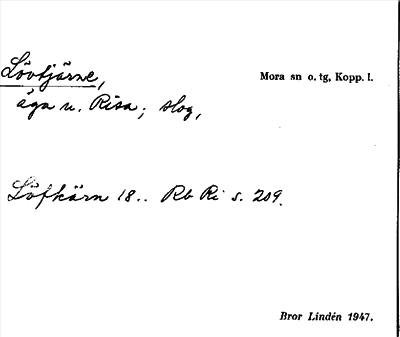 Lövtjärne,
Mora sn o. tg, Kopp. l.
äga u. Risa; slog,
Löfkärn 18.. Rb Ri s. 209.
Bror Lindén 1947.